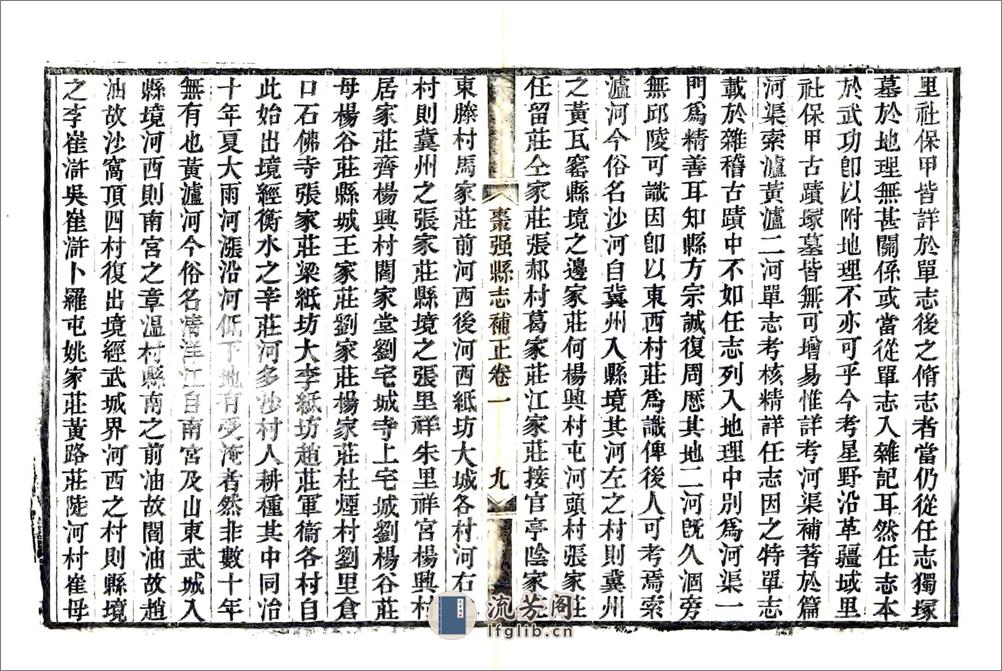 里社保甲皆詳於單志後之脩志者當仍從任志獨塚
墓於地理無甚關係或當從單志入雜記耳然任志本
於武功卽以附地理不亦可乎今考星野沿革疆域里
社保甲古蹟塚墓皆無可增易惟詳考河渠補著於篇
河渠索瀘黃瀘二河單志考核精詳任志因之特單志
載於雜稽古蹟中不如任志列入地理中別爲河渠一
門爲精善耳知縣方宗誠復周歷其地二河旣久涸旁
無邱陵可識因卽以東西村莊爲識俾後人可考焉索
瀘河今俗名沙河自冀州入縣境其河左之村則冀州
之黃瓦窰縣境之邊家莊何楊興村屯河頭村張家莊
任留莊仝家莊張郝村葛家莊江家莊接官亭陰家莊
棗强縣志補正卷一
九
東滕村馬家莊前河西後河西紙坊大城各村河右之
村則冀州之張家莊縣境之張里祥朱里祥宮楊興村
居家莊齊楊興村閻家堂劉宅城寺上宅城劉楊谷莊
母楊谷莊縣城王家莊劉家莊楊家莊杜煙村劉里倉
口石佛寺張家莊梁紙坊大李紙坊趙莊軍衞各村自
此始出境經衡水之辛莊河多沙村人耕種其中同治
十年夏大雨河漲沿河低下地有受淹者然非數十年
無有也黃瀘河今俗名淸洋江自南宮及山東武城入
縣境河西則南宮之章溫村縣南之前油故閻油故趙
油故沙窩頂四村復出境經武城界河西之村則縣境
之李崔滸吳崔滸卜羅屯姚家莊黃路莊陡河村崔母
流芳閣
lfglib.cn